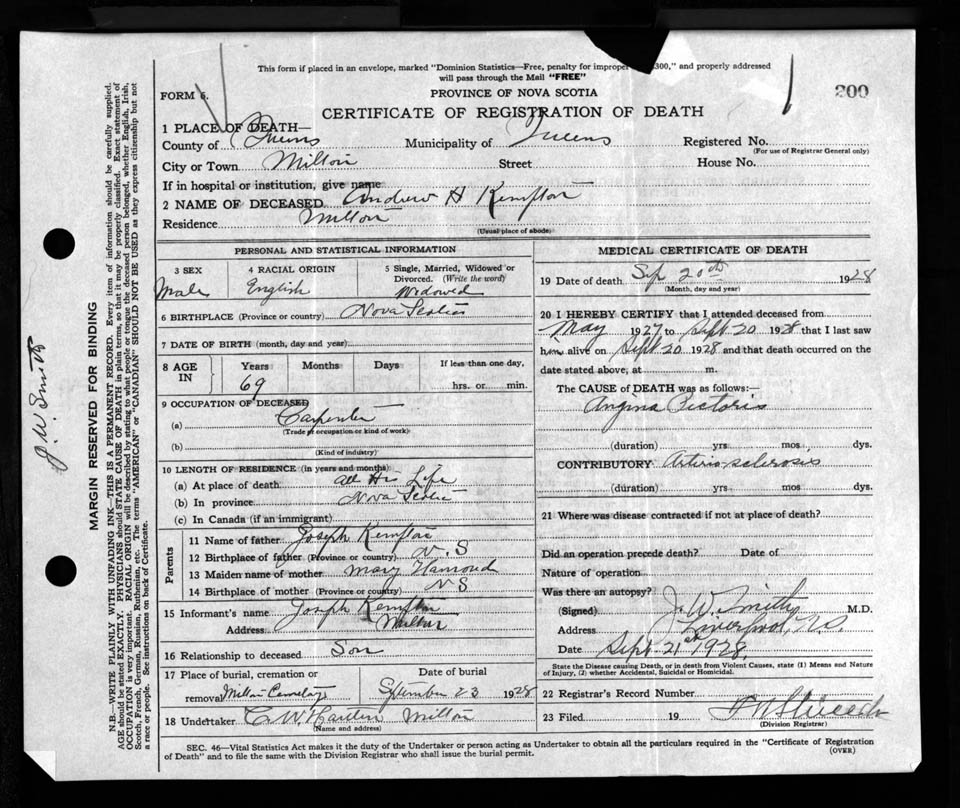 This form if placed in an envelope, marked "Dominion Statistics—Free, penalty for improper 300," and properly addressed
will pass through the Mail "FREE"
FORM 6.
PROVINCE OF NOVA SCOTIA
200
CERTIFICATE OF REGISTRATION OF DEATH
1 PLACE OF DEATH—
County of Queens Municipality of Queens Registered No.
(For use of Registrar General only)
City or Town Milton Street House No.
If in hospital or institution, give name
2 NAME OF DECEASED Andrew H Kempton
Residence Milton
(Usual place of abode)
PERSONAL AND STATISTICAL INFORMATION
3 SEX 4 RACIAL ORIGIN 5 Single, Married, Widowed or
Divorced. (Write the word)
Male English Widowed
6 BIRTHPLACE (Province or country) Nova Scotia
7 DATE OF BIRTH (month, day and year)
8 AGE IN Years Months Days If less than one day,
69 hrs. or min.
9 OCCUPATION OF DECEASED
(a) Carpenter
(Trade or occupation or kind of work)
(b)
(Kind of industry)
10 LENGTH OF RESIDENCE (in years and months)
(a) At place of death All His Life
(b) In province Nova Scotia
(c) In Canada (if an immigrant)
Parents
11 Name of father Joseph Kempton
12 Birthplace of father (Province or country) N.S
13 Maiden name of mother Mary Hamond
14 Birthplace of mother (Province or country) N S
15 Informant's name Joseph Kempton
Address Milton
16 Relationship to deceased Son
17 Place of burial, cremation or Date of burial
removal Milton Cemetary September 23 1928
18 Undertaker C. W. Milton
(Name and address)
MEDICAL CERTIFICATE OF DEATH
19 Date of death Sep 20th 1928
(Month, day and year)
20 I HEREBY CERTIFY that I attended deceased from
May 1927 to Sept 20 1928 that I last saw
him alive on Sept 20 1928 and that death occurred on the
date stated above, at m.
The CAUSE of DEATH was as follows:—
Angina Pectoris
(duration) yrs mos. dys.
CONTRIBUTORY Arterio sclerosis
(duration) yrs. mos. dys.
21 Where was disease contracted if not at place of death?
Did an operation precede death? Date of
Nature of operation
Was there an autopsy?
(Signed) J. W. Smith M.D.
Address Liverpool, N.S.
Date Sept 21st 1928
State the Disease causing Death, or in death from Violent Causes, state (1) Means and Nature
of Injury, (2) whether Accidental, Suicidal or Homicidal.
22 Registrar's Record Number
23 Filed 19
(Division Registrar)
SEC. 46—Vital Statistics Act makes it the duty of the Undertaker or person acting as Undertaker to obtain all the particulars required in the "Certificate of Registration
of Death" and to file the same with the Division Registrar who shall issue the burial permit.
(OVER)
J. W. Smith
MARGIN RESERVED FOR BINDING
N.B.—WRITE PLAINLY WITH UNFADING INK—THIS IS A PERMANENT RECORD. Every item of information should be carefully supplied.
AGE should be stated EXACTLY. PHYSICIANS should STATE CAUSE OF DEATH in plain terms, so that it may be properly classified. Exact statement of
OCCUPATION is very important. RACIAL ORIGIN will be described by stating to what people or tongue the deceased person belonged, whether English, Irish,
Scotch, French, German, Russian, Ruthenian, etc. The terms "AMERICAN" or "CANADIAN" SHOULD NOT BE USED as they express citizenship but not
a race or people. See instructions on back of Certificate.